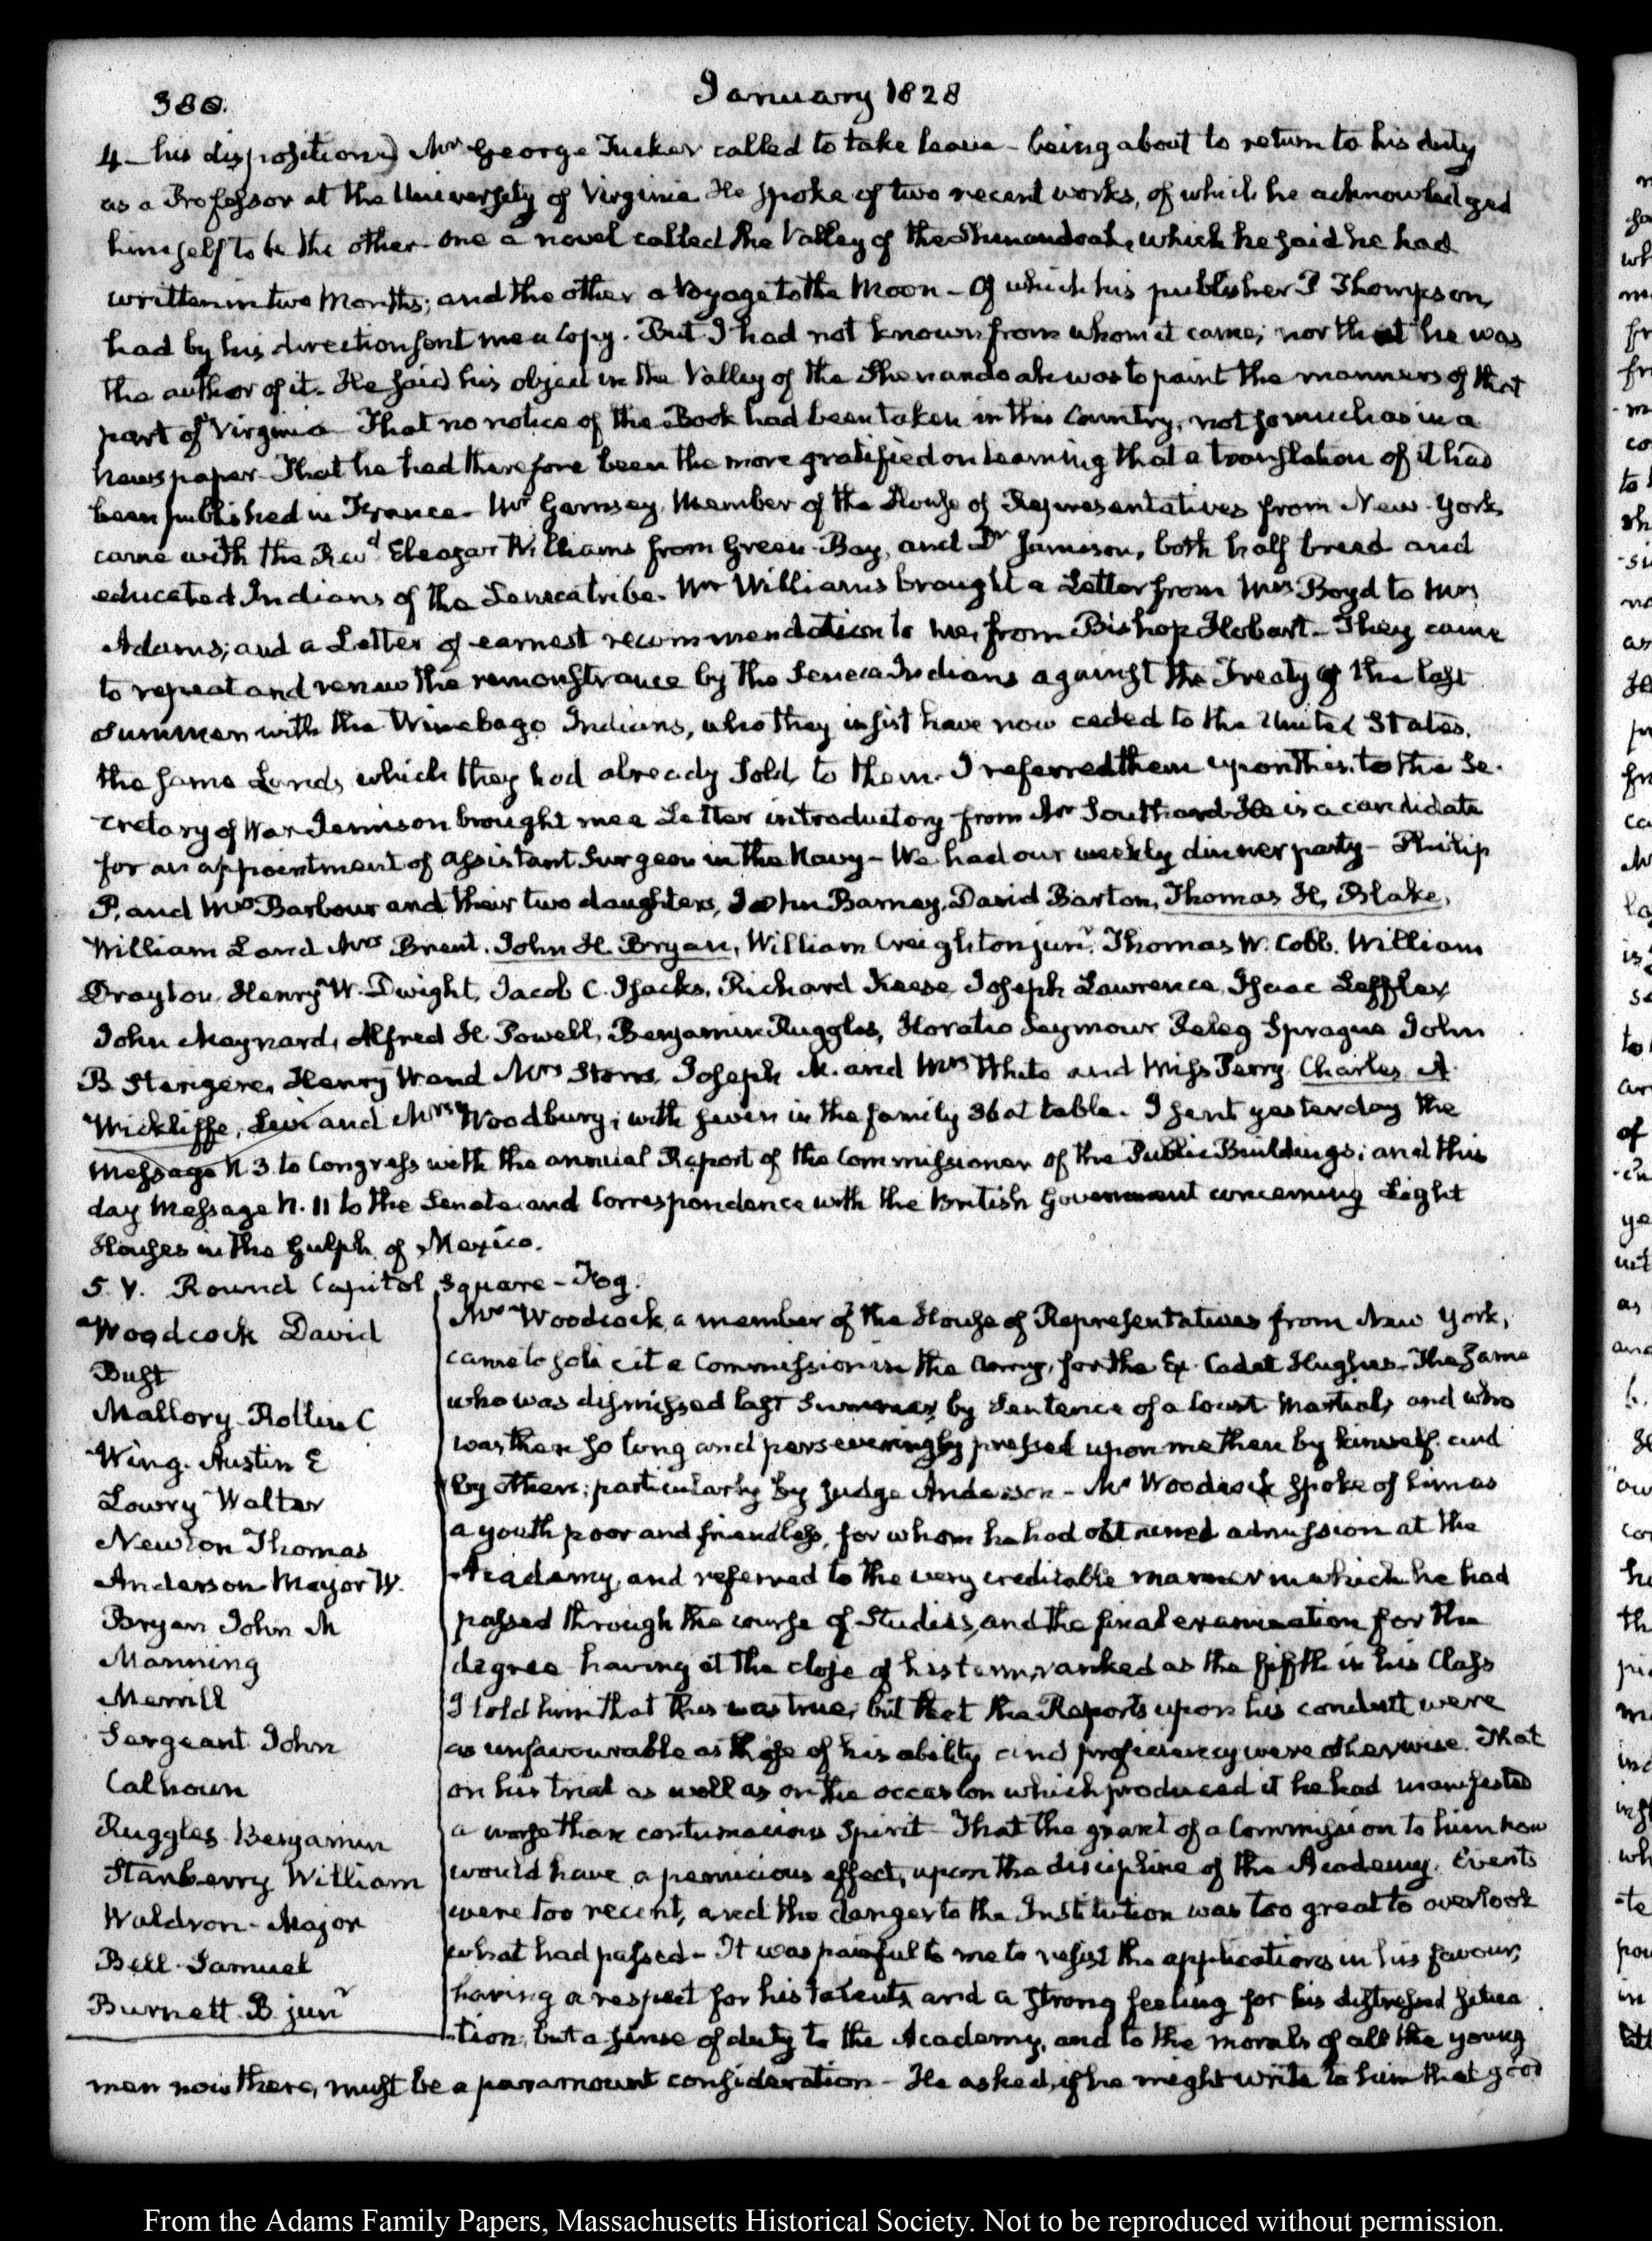 380.
January 1828
4 — his disposition) Mr George Tucker called to take leave — being about to return to his duty
as a Professor at the University of Virginia He spoke of two recent works, of which he acknowledged
himself to be the other — one a novel called the Valley of the Shenandoah, which he said he had
written in two Months; and the other a Voyage to the Moon — Of which his publisher Thompson,
had by his direction sent me a Copy. But I had not known from whom it came; nor that he was
the author of it. He said his object in the Valley of the Shenandoah was to paint the manners of that
part of Virginia That no notice of the Book had been taken in this Country, not so much as in a
newspaper — That he had therefore been the more gratified on learning that a translation of it had
been published in France — Mr Garnsey, Member of the House of Representatives from New-York
came with the Revd Eleazar Williams from Green-Bay, and Dr Jamison, both half breed and
educated Indians of the Seneca tribe. Mr Williams brought a Letter from Mrs Boyd to Mrs
Adams; and a Letter of earnest recommendation to me, from Bishop Hobart — They came
to repeat and renew the remonstrance by the Seneca Indians against the Treaty of the last
summer with the Winebago Indians, who they insist have now ceded to the United States,
the same Lands which they had already sold to them. I referred them upon this, to the Se-
cretary of War Jemison brought me a Letter introductory from Mr Southard — He is a candidate
for an appointment of assistant Surgeon in the Navy — We had our weekly dinner party — Philip
P. and Mrs Barbour and their two daughters, John Barney, David Barton, Thomas H. Blake,
William L and Mrs Brent, John H. Bryan, William Creighton junr. Thomas W. Cobb. William
Drayton, Henry W. Dwight, Jacob C. Isacks, Richard Keese Joseph Lawrence, Isaac Leffler
John Maynard, Alfred H. Powell, Benjamin Ruggles, Horatio Seymour Peleg Sprague John
B Sterigere, Henry R and Mrs Storrs, Joseph M. and Mrs White and Miss Perry Charles A
Wickliffe, Levi and Mrs Woodbury; with seven in the family 36 at table. I sent yesterday the
Message N. 3 to Congress with the annual Report of the Commissioner of the Public Buildings; and this
day Message N. 11 to the Senate and Correspondence with the British Government concerning Light
Houses in the Gulph of Mexico.
5. V. Round Capitol Square — Fog.
Woodcock David
Bust
Mallory Rollin C
Wing. Austin E
Lowry Walter
Newton Thomas
Anderson — Mayor W.
Bryan John M
Manning
Merrill
Sergeant John
Calhoun
Ruggles Benjamin
Stanberry William
Waldron — Major
Bell Samuel
Burnett B junr
Mr Woodcock, a member of the House of Representatives from New York,
came to solicit a Commission in the Army, for the Ex-Cadet Hughes — The same
who was dismissed last Summer by Sentence of a Court Martial, and who
was then so long and perseveringly pressed upon me then by himself and
by others; particularly by Judge Anderson — Mr Woodcock spoke of him as
a youth poor and friendless, for whom he had obtained admission at the
Academy, and referred to the very creditable manner in which he had
passed through the course of Studies, and the final examination for the
degree having at the close of his term, ranked as the fifth in his Class
I told him that this was true; but that the Reports upon his conduct were
as unfavourable as those of his ability and proficiency were otherwise. That
on his trial as well as on the occasion which produced it he had manifested
a worse than contumacious Spirit — That the grant of a Commission to him now
would have a pernicious effect, upon the discipline of the Academy. Events
were too recent, and the danger to the Institution was too great to overlook
what had passed — It was painful to me to resist the applications in his favour,
having a respect for his talents, and a strong feeling for his distressed situa
tion; but a sense of duty to the Academy, and to the morals of all the young
men now there, must be a paramount consideration — He asked, if he might write to him that good
From the Adams Family Papers, Massachusetts Historical Society. Not to be reproduced without permission.